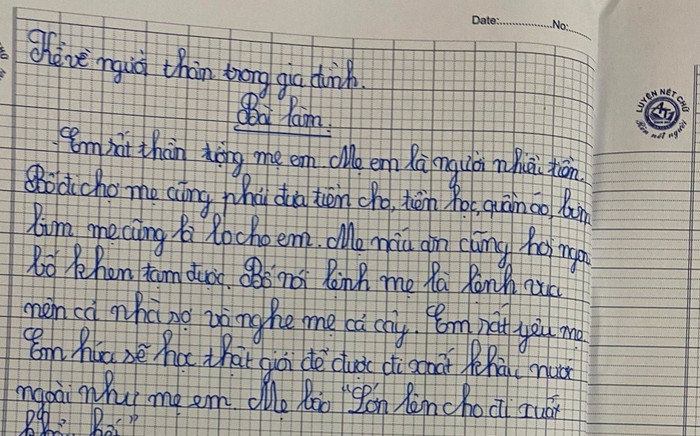 Date:...............No:.......
Kể về người thân trong gia đình.
Bài làm.
Em rất thần tượng mẹ em. Mẹ em là người nhiều tiền.
Bố đi chợ mẹ cũng phải đưa tiền cho, tiền học, quần áo, bỉm
bỉm mẹ cũng lo cho em. Mẹ nấu ăn cũng hơi ngon
bố khen tạm được. Bố nói lệnh mẹ là lệnh vua
nên cả nhà sợ và nghe mẹ cả cây. Em rất yêu mẹ.
Em hứa sẽ học thật giỏi để được đi xuất khẩu nước
ngoài như mẹ em. Mẹ bảo "Lớn lên cho đi xuất
khẩu
LUYỆN NÉT CHỮ
Rèn nết người